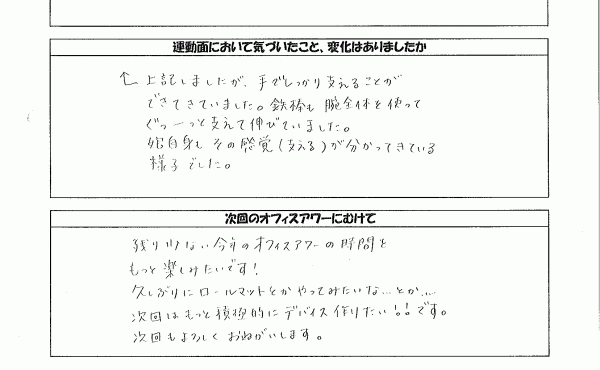 運動面において気づいたこと、変化はありましたか
↑上記しましたが、手でしっかり支えることが
できてきていました。鉄棒も腕全体を使って
ぐっーっと支えて伸びていました。
自身もその感覚(支える)が分かってきている
様子でした。
次回のオフィスアワーにむけて
残り少ない今年のオフィスアワーの時間を
もっと楽しみたいです!
久しぶりにロールマットとかやってみたいな…とか…
次回はもっと積極的にデバイス作りたい!!です。
次回もよろしくおねがいします。